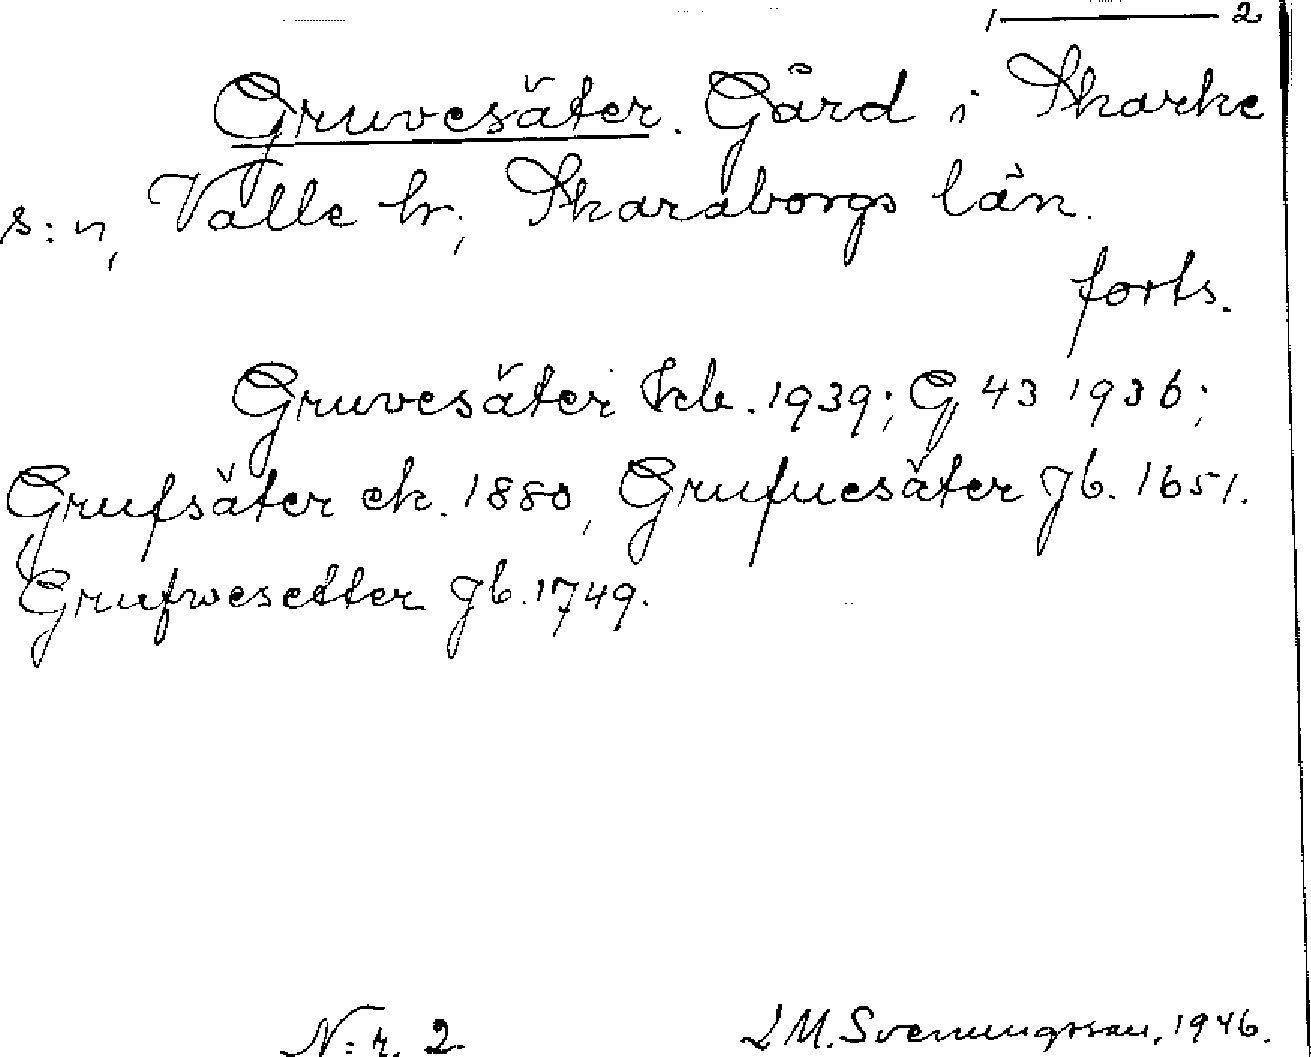 1 — 2
Gruvesäter. Gård i Skarke
s:n, Valle hr, Skaraborgs län.
forts.
Gruvesäter kb. 1939; G 43 1936;
Grufsäter ek. 1880, Grufuesäter jb. 1651.
Grufwesetter jb. 1749.
N:r. 2 M. Svenungsson, 1946.